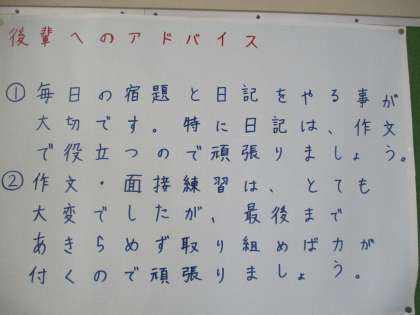 後輩へのアドバイス
① 毎日の宿題と日記をやる事が
大切です。特に日記は、作文
で役立つので頑張りましょう。
② 作文・面接練習は、とても
大変でしたが、最後まで
あきらめず取り組めば力が
付くので頑張りましょう。